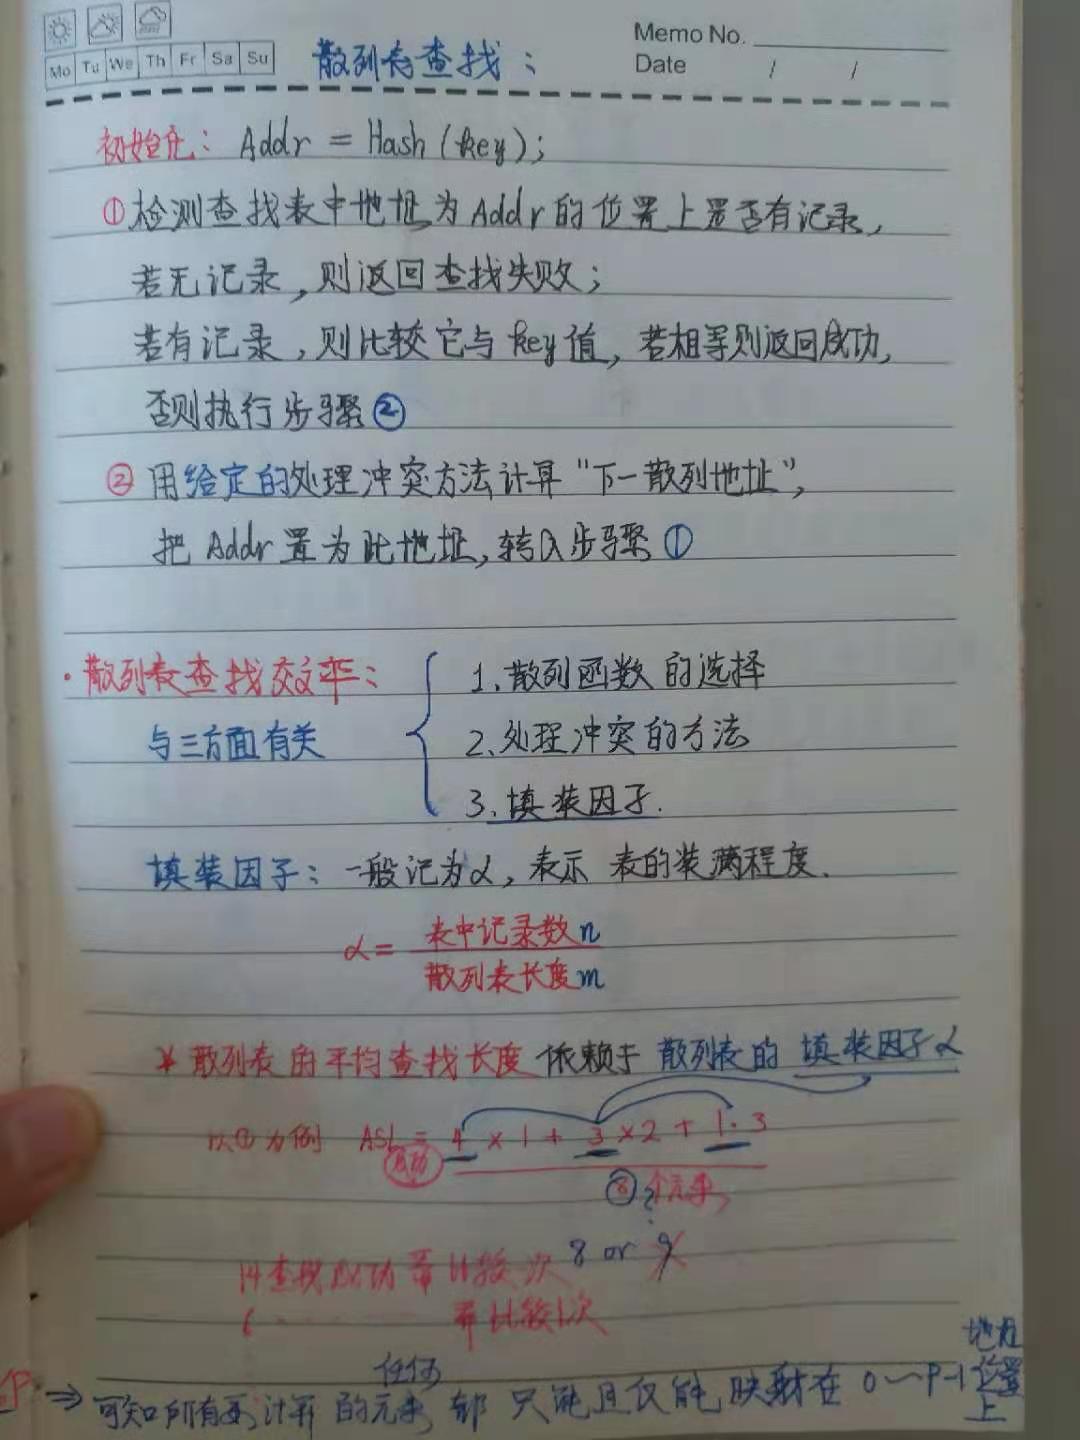 Memo No.
Date / /
Mo Tu We Th Fr Sa Su
散列表查找：
初始化：Addr = Hash (key);
①检测查找表中地址为Addr的位置上是否有记录,
若无记录,则返回查找失败;
若有记录,则比较它与key值,若相等则返回成功,
否则执行步骤②
②用给定的处理冲突方法计算“下一散列地址”,
把Addr置为此地址,转入步骤①
·散列表查找效率：
与三方面有关
1、散列函数的选择
2、处理冲突的方法
3、填装因子.
填装因子：一般记为α,表示 表的装满程度.
α= 表中记录数n
散列表长度m
* 散列表的平均查找长度 依赖于 散列表的 填装因子α
以①为例 ASL成功= 4×1+3×2+1·3
⑧个元素
14查找成功需比较 次 8 or 9
需比较1次
任何
P ⇒ 可知所有要计算的元素 都 只能且仅能映射在 0~P-1
地址
位置
上